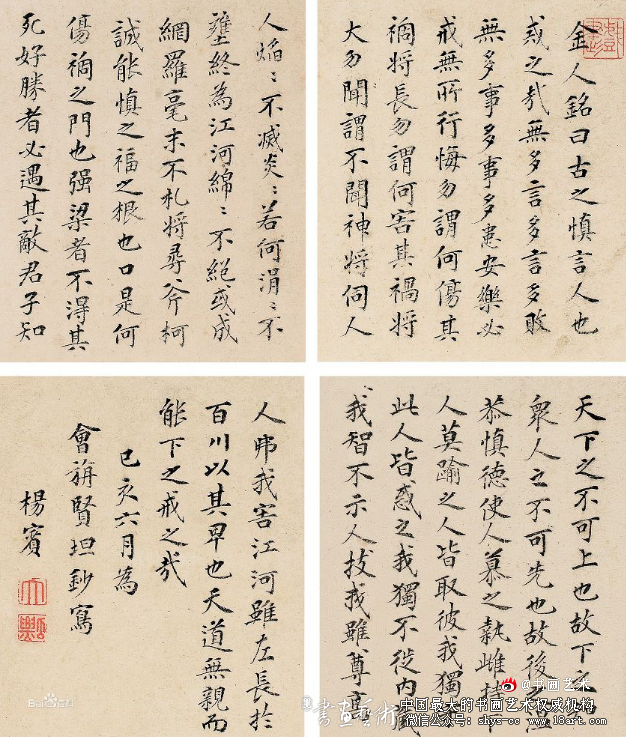 金人銘曰古之慎言人也
戒之哉無多言多言多敗
無多事多事多患安樂必
戒無所行悔勿謂何傷其
禍將長勿謂何害其禍將
大勿聞謂不聞神將伺人
人焰〻不滅炎〻若何涓〻不
壅終為江河綿〻不絕或成
網羅毫末不札將尋斧柯
誠能慎之福之根也口是何
傷禍之門也强梁者不得其
死好勝者必遇其敵君子知
天下之不可上也故下之
眾人之不可先也故後之温
恭慎德使人慕之執雌持
人莫踰之人皆取彼我獨
此人皆惑之我獨不徙內藏
我智不示人技我雖尊高
人弗我害江河雖左長於
百川以其卑也天道無親而
能下之戒之哉
己亥六月為
會旃賢坦鈔寫
楊賓
Baidu百科
@书画艺术
中国最大的书画艺术权威机构
微信公众号: shys-cc www.18art.com